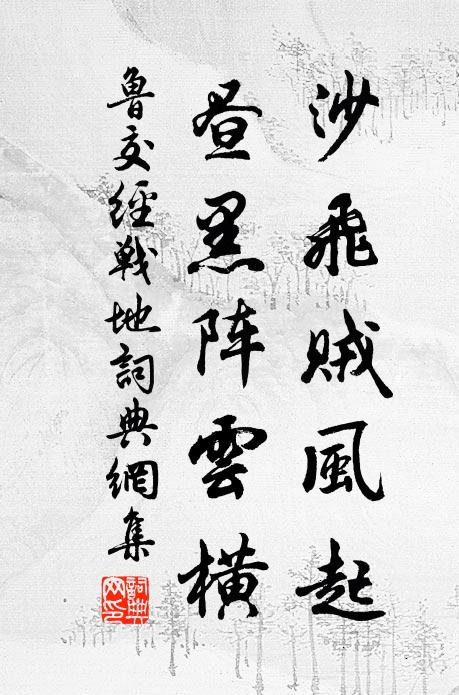 沙飛賊風起
昼黑阵雲橫
鲁交經戰地詞典網集
詞典